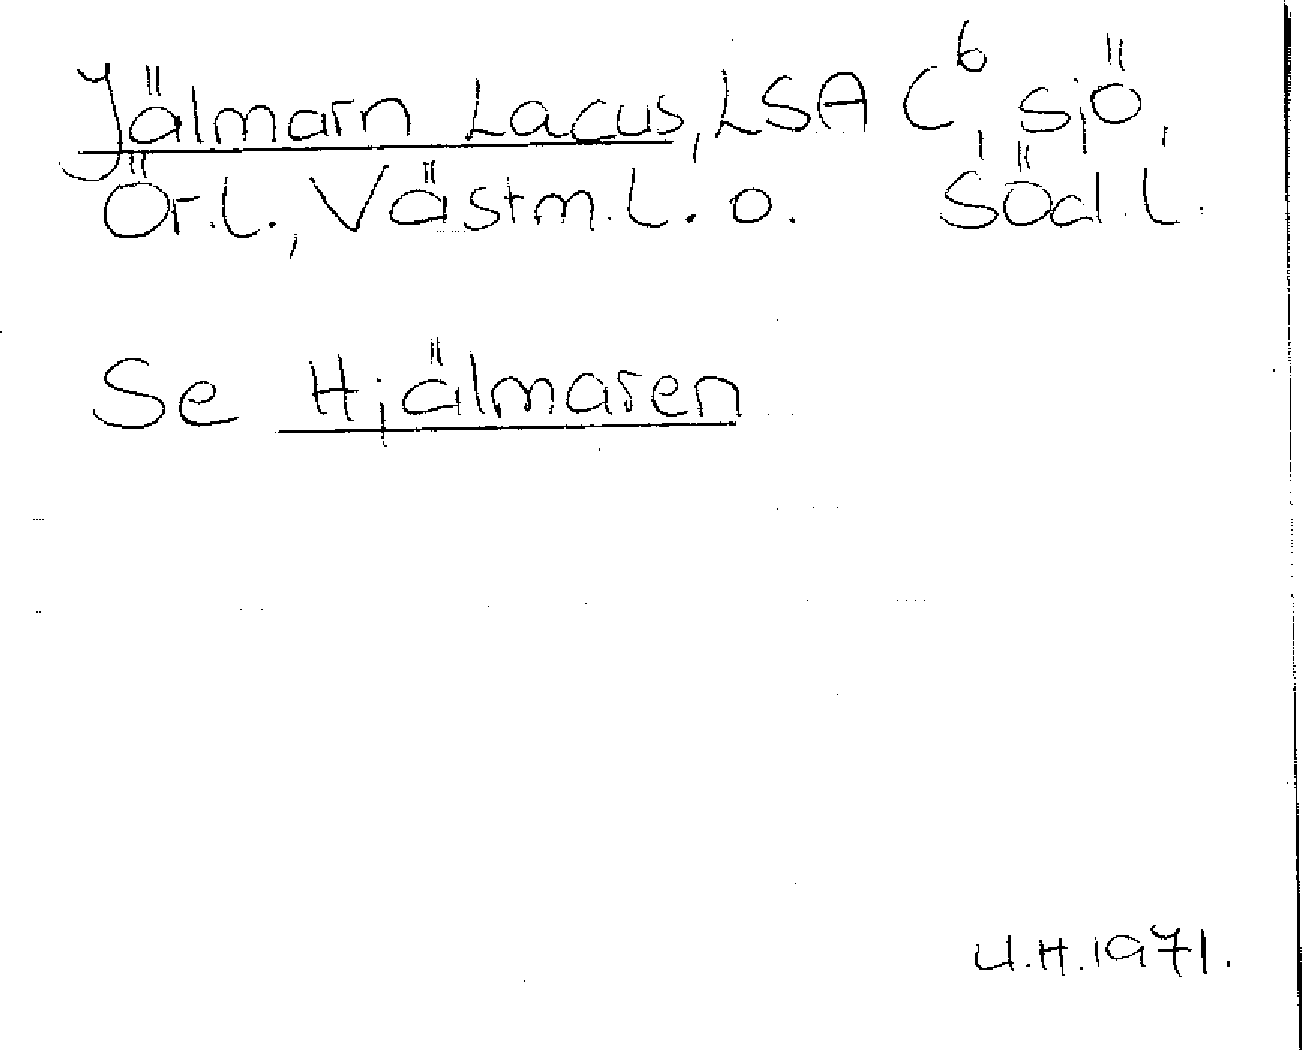 Jälmarn Lacus, LSA C⁶, sjö,
Ör.l., Västm.l. o. Söd.l.
Se Hjälmaren
U.H.1971.